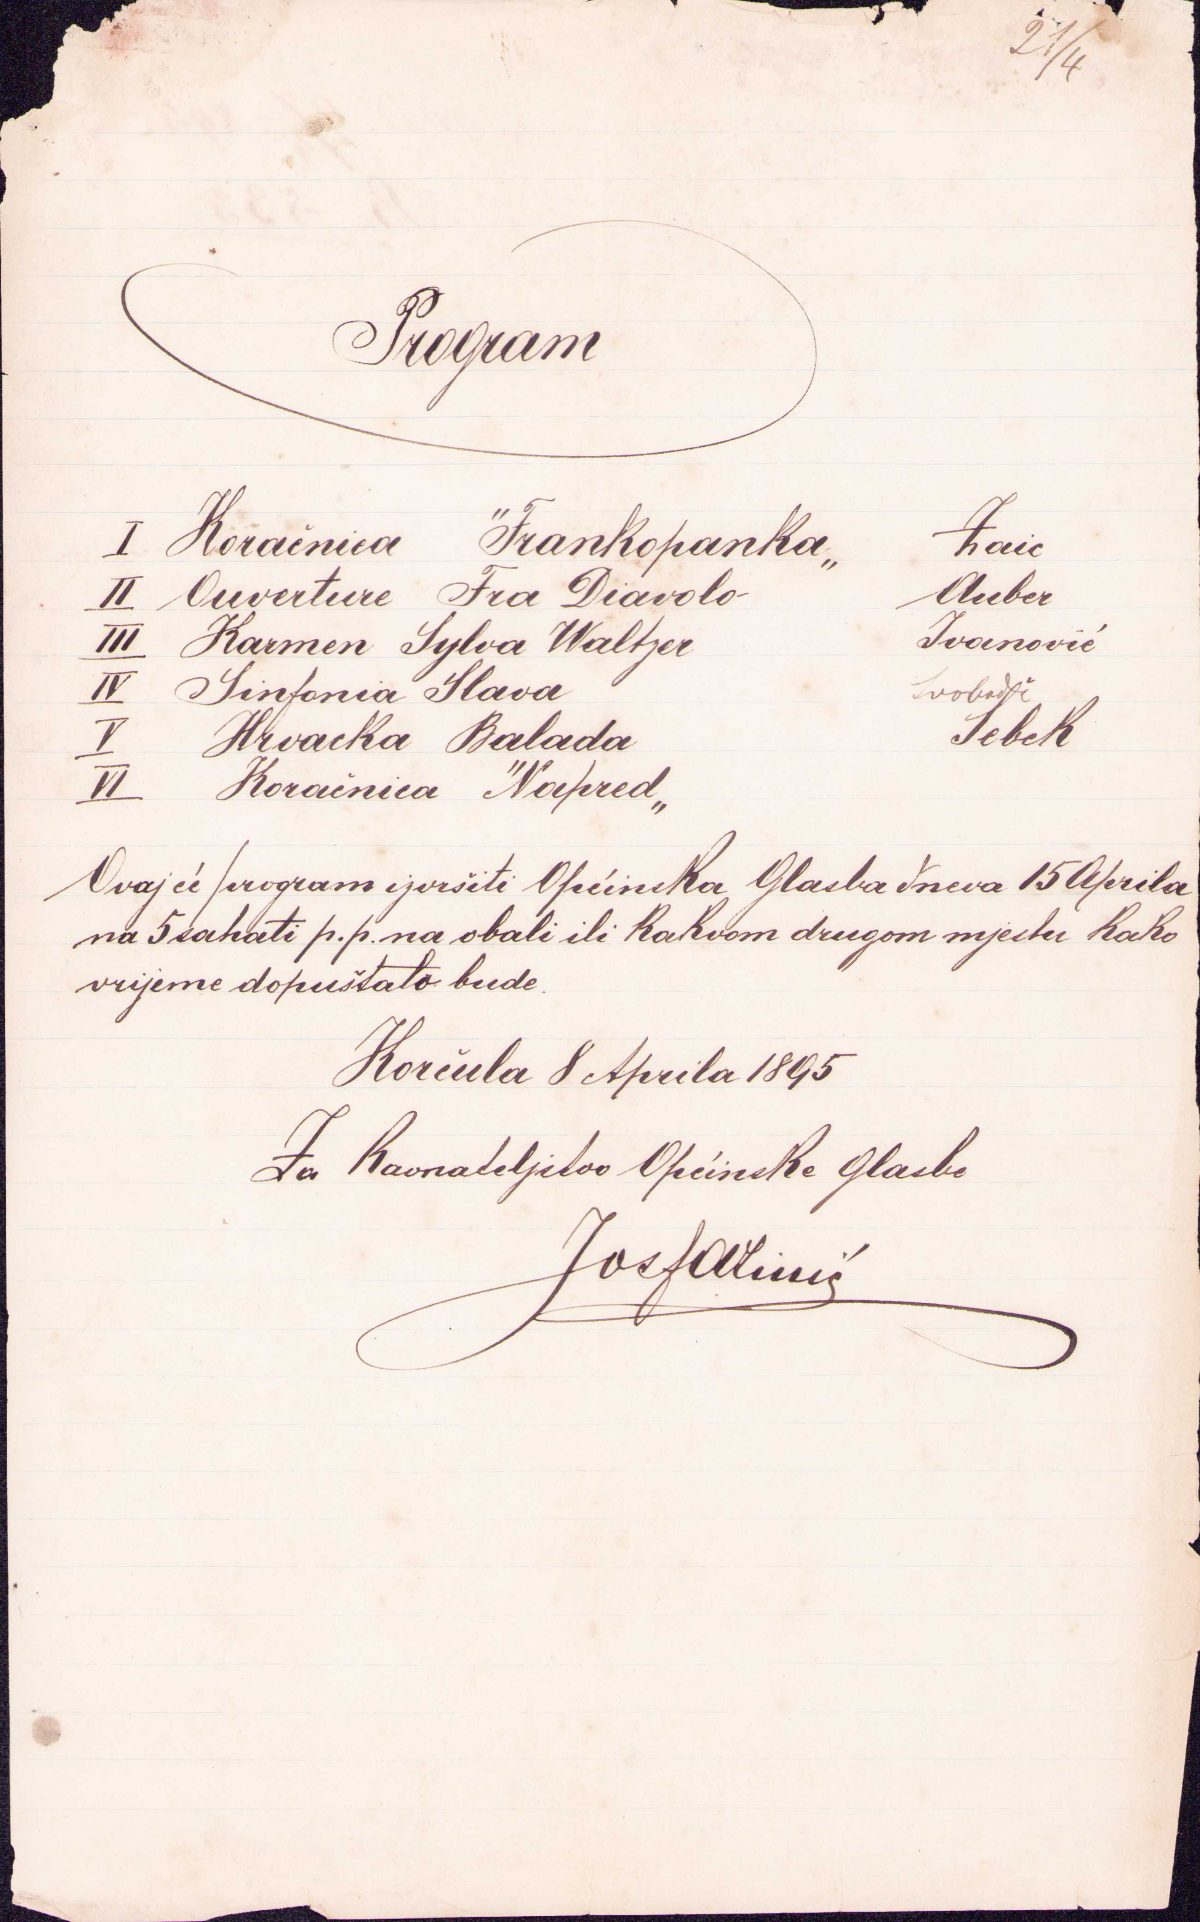 21/4
Program
I Koračnica "Frankopanka„ Zaic
II Ouverture Fra Diavolo Auber
III Karmen Sylva Waltzer Ivanović
IV Sinfonia Slava
V Hrvacka Balada Sebek
VI Koračnica "Napred„
Ovaj će program izvršiti Općinska Glasba dneva 15 Aprila
na 5 sahati p.p. na obali ili kakvom drugom mjestu kako
vrijeme dopuštalo bude.
Korčula 8 Aprila 1895
Za Ravnateljstvo Općinske Glasbe